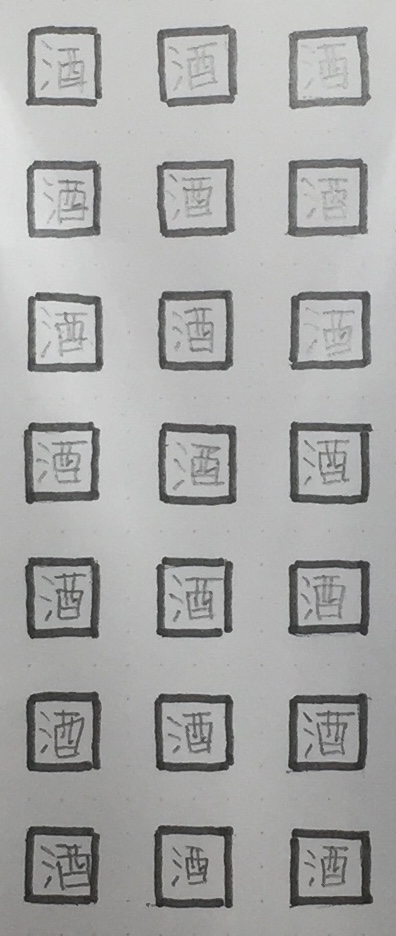 酒 酒 酒
酒 酒 酒
酒 酒 酒
酒 酒 酒
酒 酒 酒
酒 酒 酒
酒 酒 酒